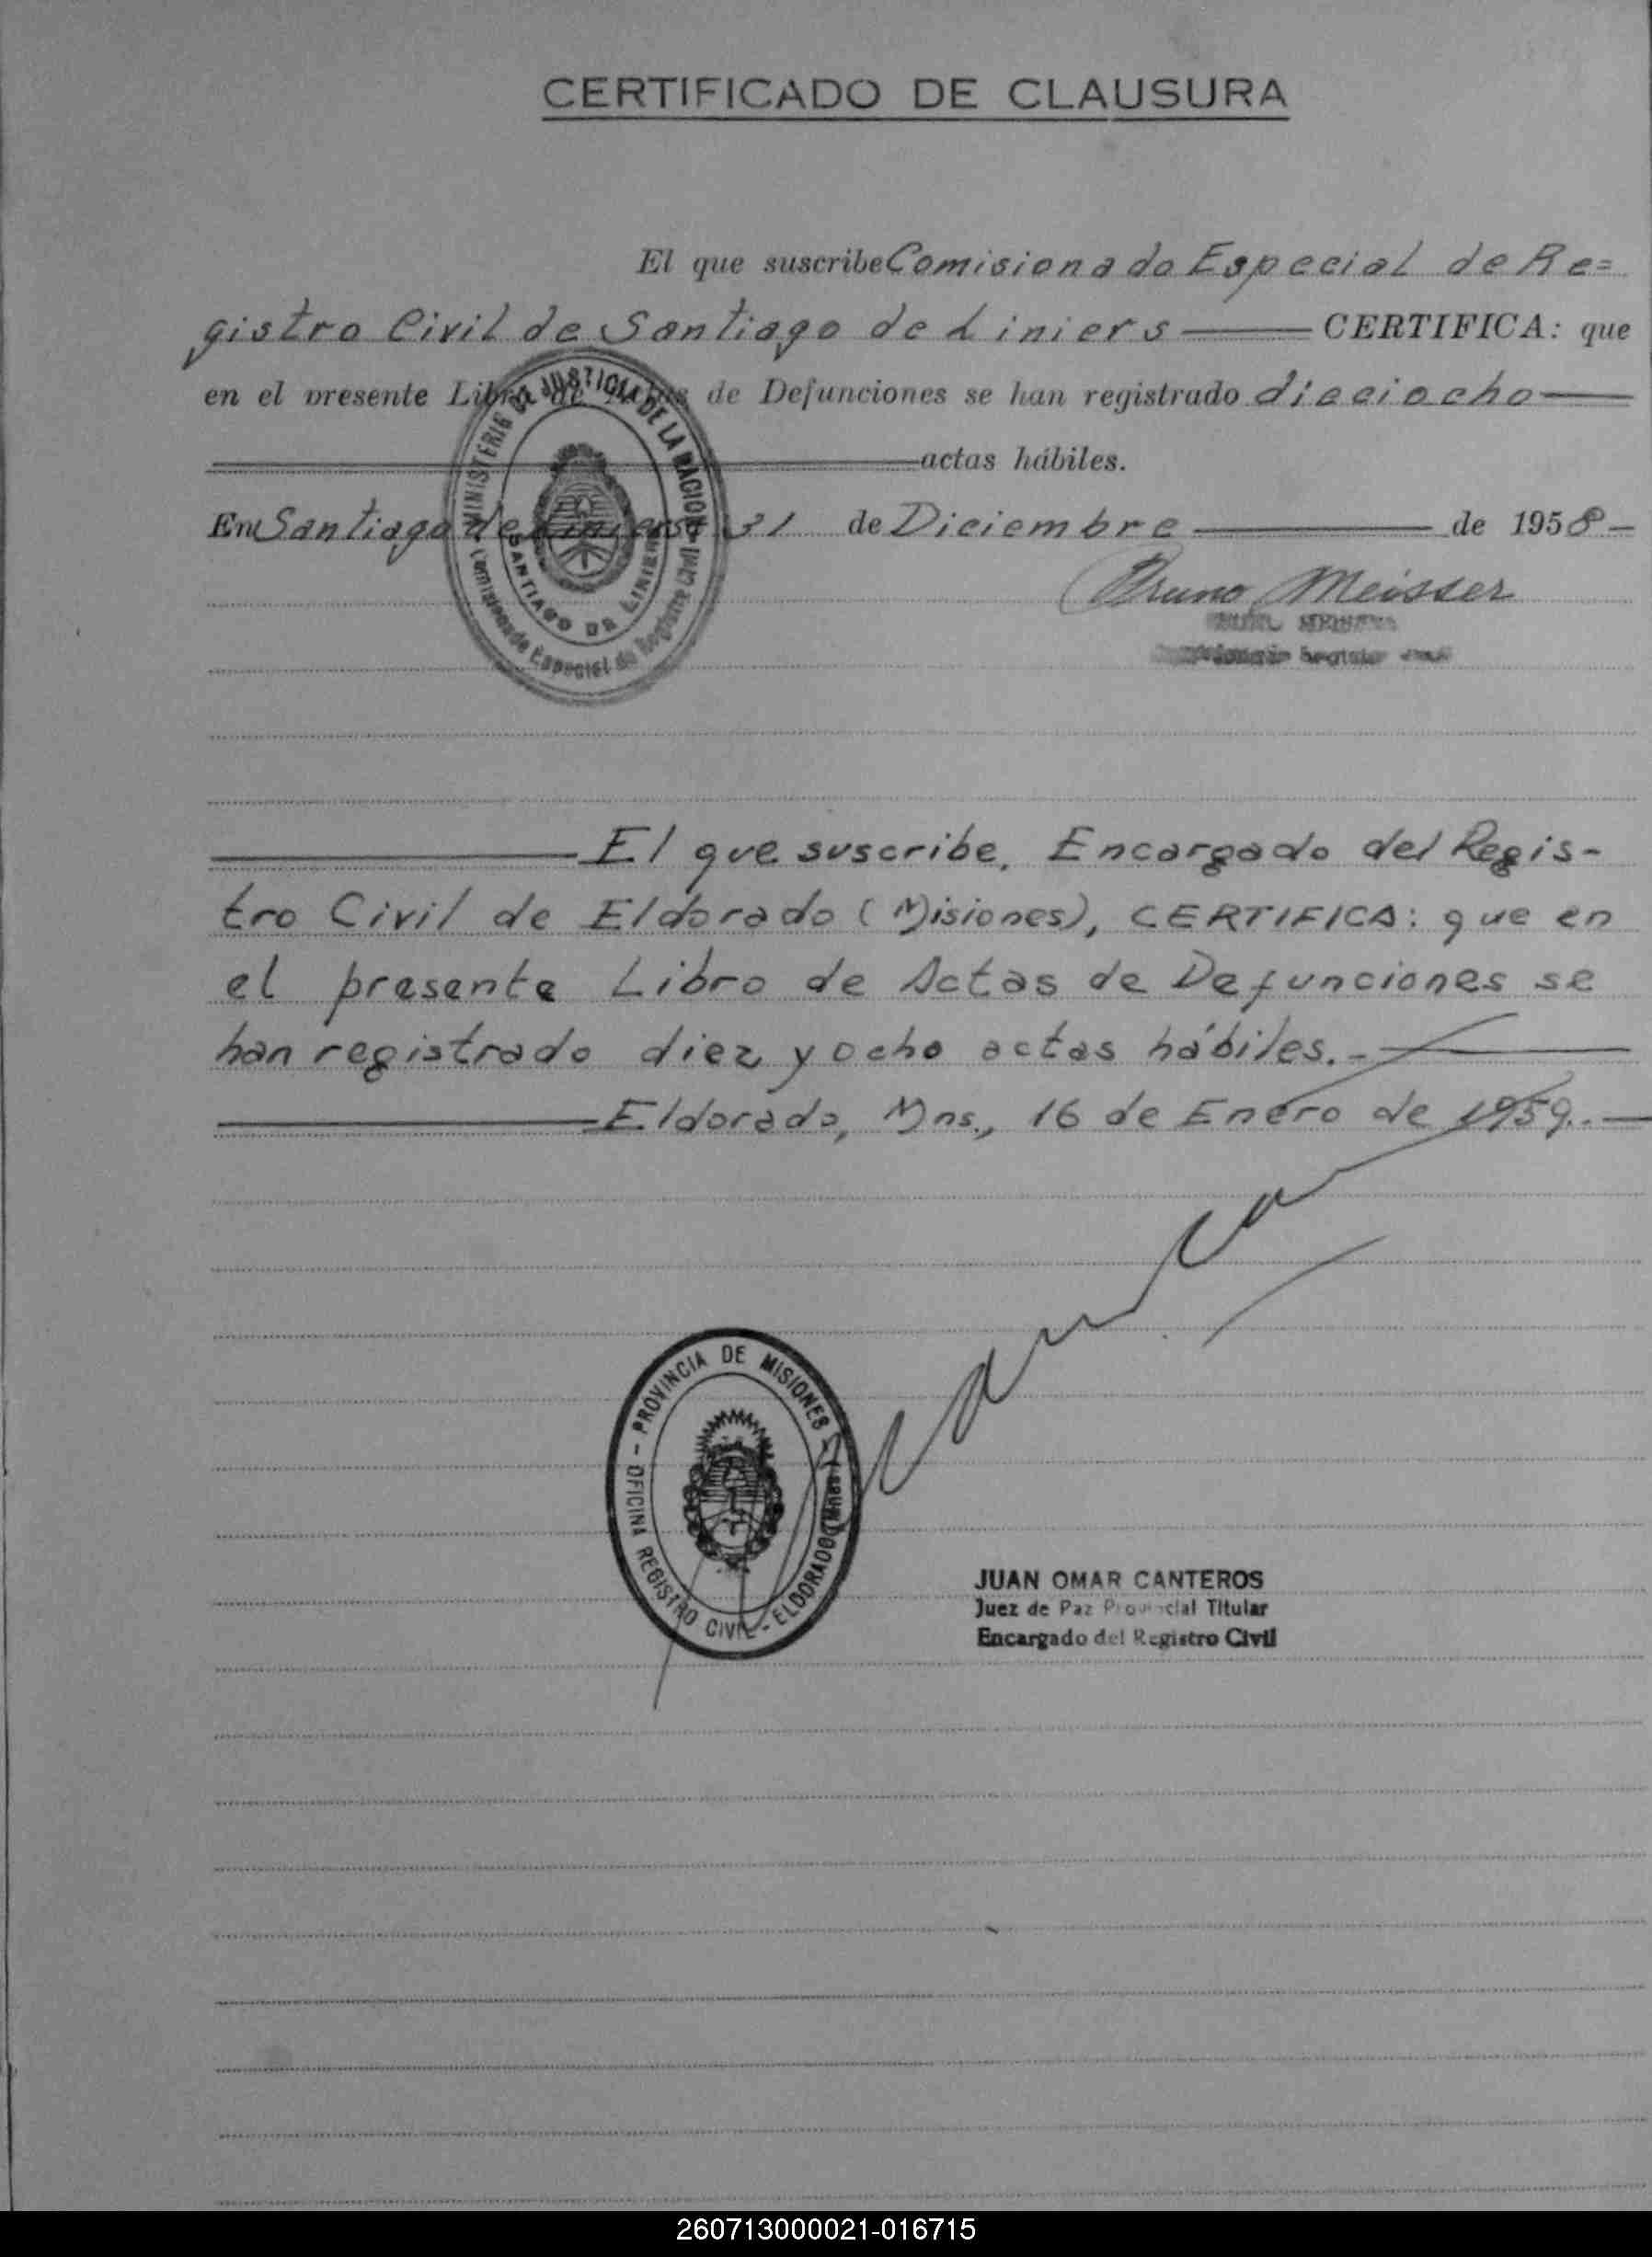 CERTIFICADO DE CLAUSURA
El que suscribe Comisionado Especial de Re=
gistro Civil de Santiago de Liniers CERTIFICA: que
en el presente Libro de Actas de Defunciones se han registrado dieciocho
actas hábiles.
En Santiago de Liniers a 31 de Diciembre de 1958
Bruno Meisser
MINISTERIO DE JUSTICIA DE LA NACION
Comisionado Especial de Registro Civil
SANTIAGO DE LINIERS
El que suscribe, Encargado del Regis-
tro Civil de Eldorado (Misiones), CERTIFICA: que en
el presente Libro de Actas de Defunciones se
han registrado diez y ocho actas hábiles.-
Eldorado, Mns., 16 de Enero de 1959.-
- PROVINCIA DE MISIONES -
OFICINA REGISTRO CIVIL - ELDORADO (Mnes.)
JUAN OMAR CANTEROS
Juez de Paz Provincial Titular
Encargado del Registro Civil
260713000021-016715